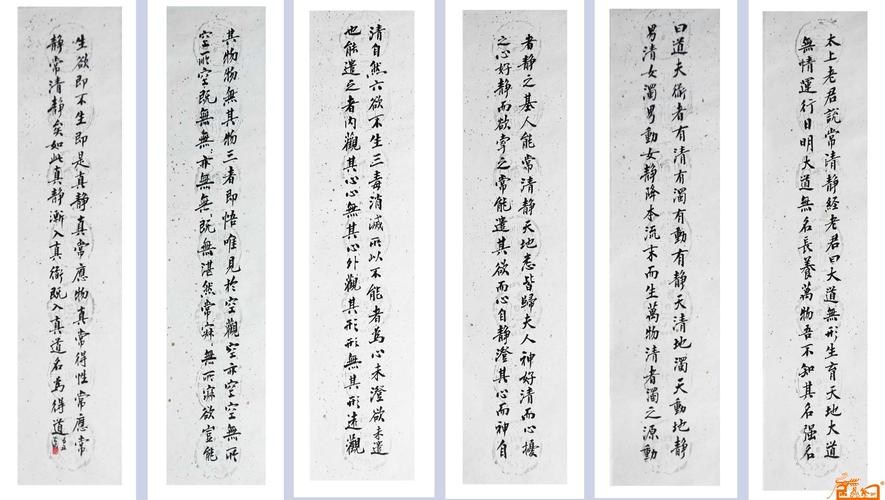 太上老君說常清靜經老君曰大道無形生育天地大道
無情運行日明大道無名長養萬物吾不知其名強名
曰道夫衜者有清有濁有動有靜天清地濁天動地靜
男清女濁男動女靜降本流末而生萬物清者濁之源動
者靜之基人能常清靜天地悉皆歸夫人神好清而心擾
之心好靜而欲牽之常能遣其欲而心自靜澄其心而神自
清自然六欲不生三毒消滅所以不能者為心未澄欲未遣
也能遣之者內觀其心心無其心外觀其形形無其形遠觀
其物物無其物三者即悟唯見於空觀空亦空空無所
空所空既無無無亦無無既無湛然常寂無所寂欲豈能
生欲即不生即是真靜真常應物真常得性常應常
靜常清靜矣如此真靜漸入真衜既入真道名為得道